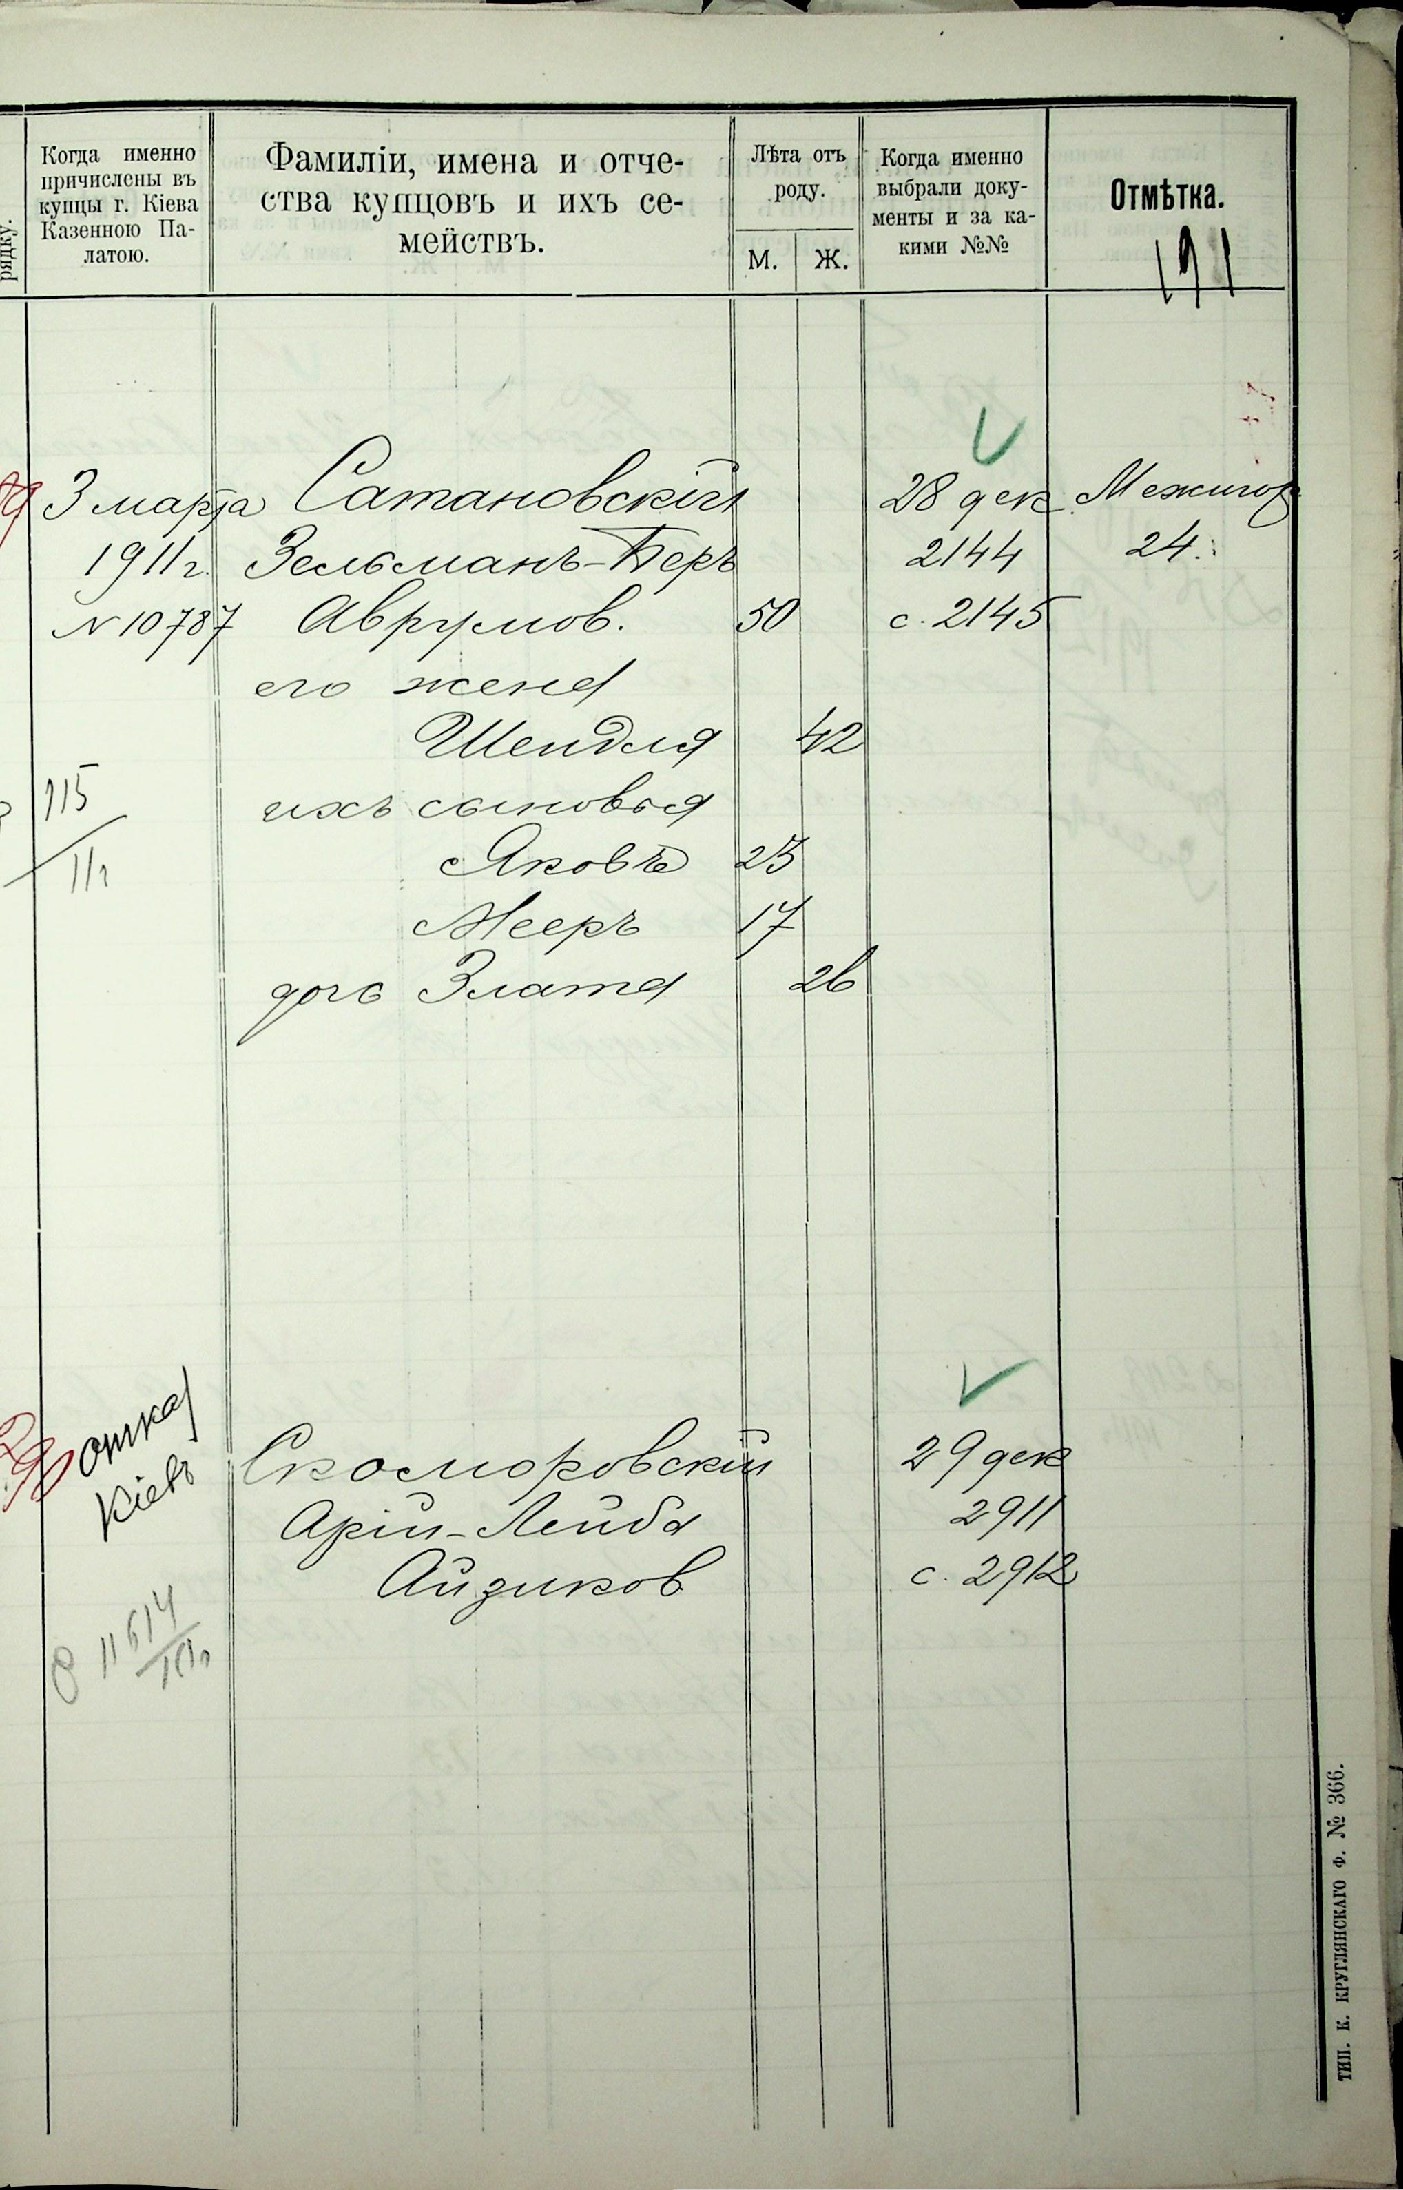 рядку.
Когда именно
причислены въ
купцы г. Кіева
Казенною Па-
латою.
Фамиліи, имена и отче-
ства купцовъ и ихъ се-
мействъ.
Лѣта отъ
роду.
М. Ж.
Когда именно
выбрали доку-
менты и за ка-
кими №№
Отмѣтка.
191
3 марта Сатановскій 28 дек. Межигор
1911 г. Зельманъ-Беръ 2144 24.
№ 10787 Аврумов. 50 с. 2145
его жена
Шендля 42
115
11 г
ихъ сыновья
Яковъ 23
Мееръ 17
дочь Злата 26
290
Кіевъ
Скоморовскій 29 дек
Арій-Лейба 2911
Айзиков с. 2912
11614
ТИП. К. КРУГЛЯНСКАГО Ф. № 366.